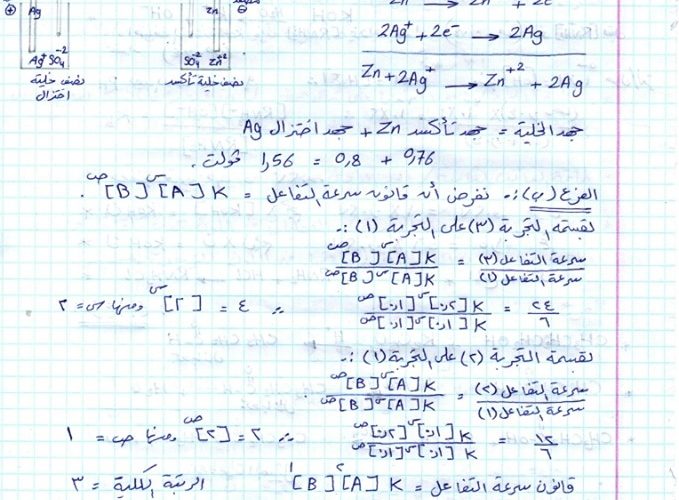 Zn → Zn + 2e
2Ag⁺ + 2e⁻ → 2Ag
Zn + 2Ag⁺ → Zn⁺² + 2Ag
⊕ Ag Zn ⊖
Ag⁺ SO₄⁻² SO₄⁻² Zn⁺²
نصف خلية اختزال
نصف خلية تأكسد
جهد الخلية = جهد تأكسد Zn + جهد اختزال Ag
٠,٧٦ + ٠,٨ = ١,٥٦ فولت.
الفرع (ب) :- نفرض أن قانون سرعة التفاعل = K [A]ˢ [B]ˢ .
لقسمة التجربة (٣) على التجربة (١) :-
سرعة التفاعل (٣) / سرعة التفاعل (١) = K [A]س [B]ص / K [A]س [B]ص
٢٤ / ٦ = K [٠,٢]س [٠,١]ص / K [٠,١]س [٠,١]ص ∴ ٤ = [٢]س ومنها س = ٢
لقسمة التجربة (٢) على التجربة (١) :-
سرعة التفاعل (٢) / سرعة التفاعل (١) = K [A]س [B]ص / K [A]س [B]ص
١٢ / ٦ = K [٠,١]س [٠,٢]ص / K [٠,١]س [٠,١]ص ∴ ٢ = [٢]ص ومنها ص = ١
قانون سرعة التفاعل = K [A]² [B]¹ الرتبة الكلية = ٣